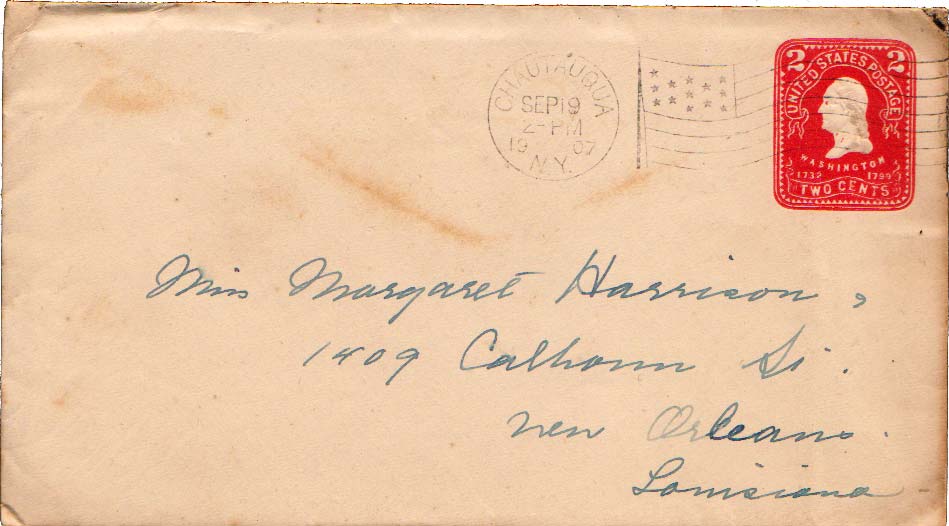 CHAUTAUQUA
SEP 19
2-PM
1907
N.Y.
2 2
UNITED STATES POSTAGE
WASHINGTON
1732 1799
TWO CENTS
Miss Margaret Harrison,
1409 Calhoun St.
New Orleans.
Louisiana